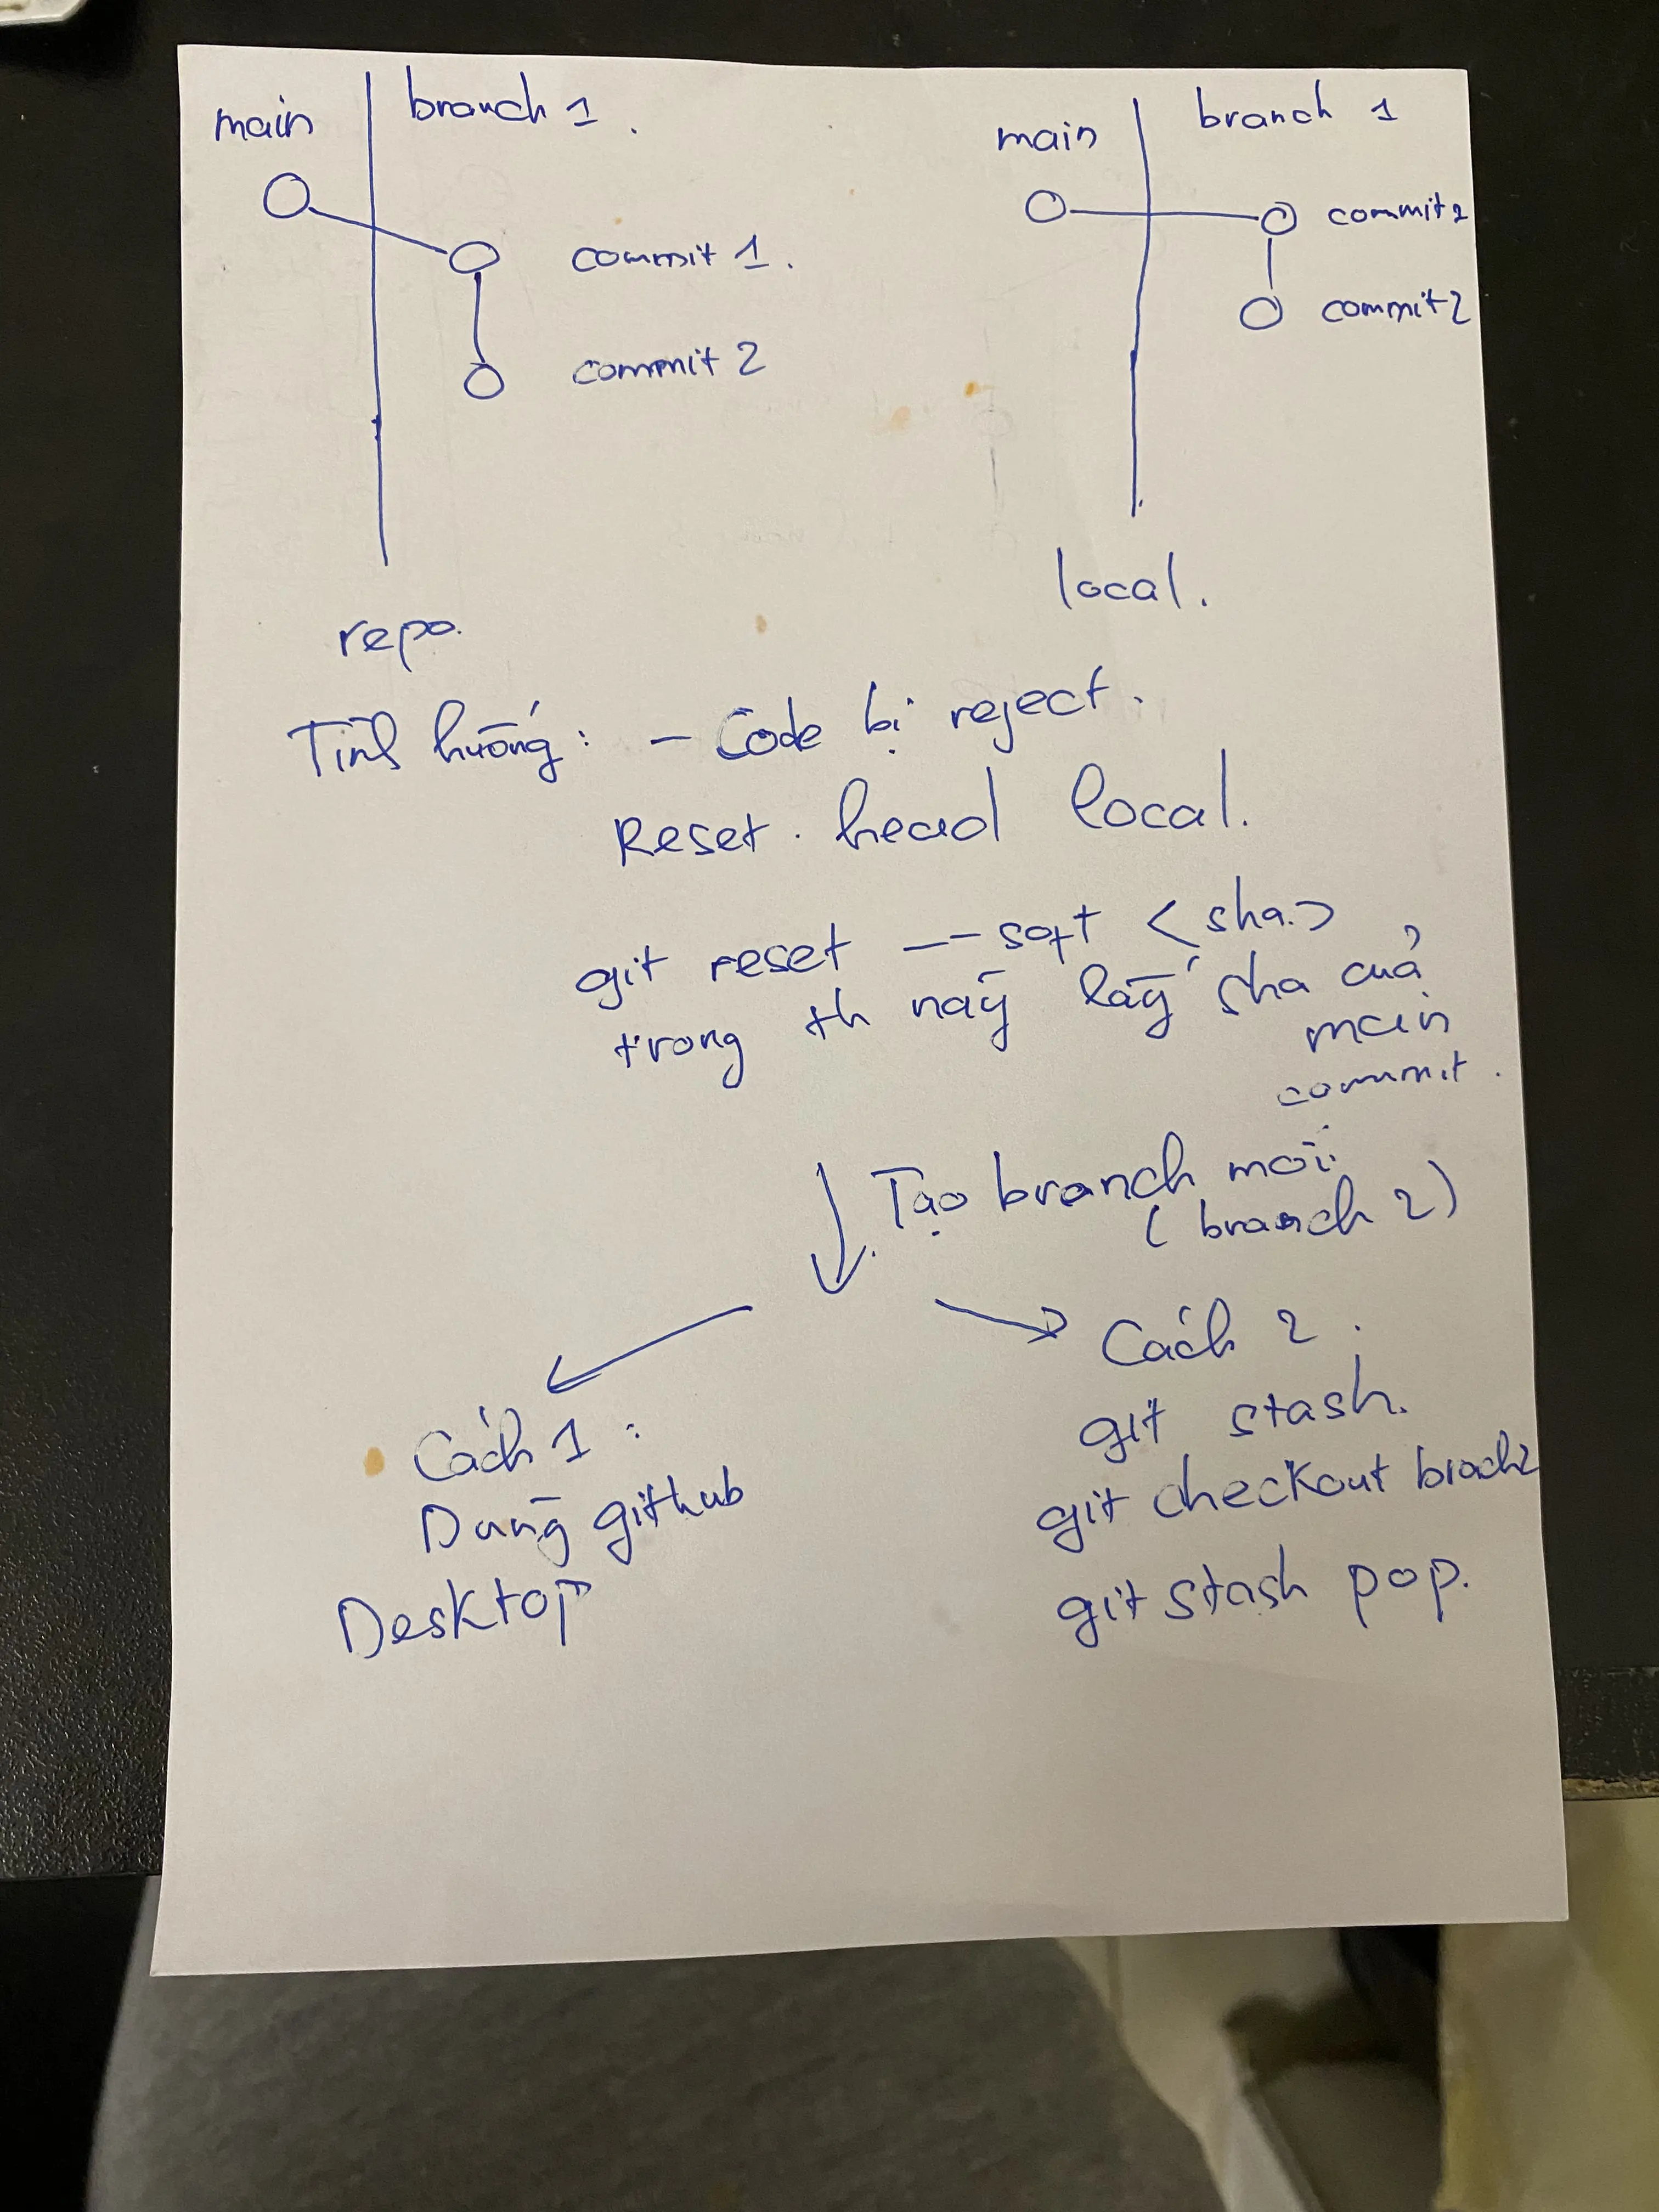 main
branch 1.
commit 1.
commit 2
repo.
main
branch 1
commit 2
commit 2
local.
Tình huống: - Code bị reject.
Reset. head local.
git reset -- soft <sha>
trong th này lấy sha của
main
commit.
Tạo branch mới
(branch 2)
Cách 1:
Dùng github
Desktop
Cách 2:
git stash.
git checkout brach2
git stash pop.